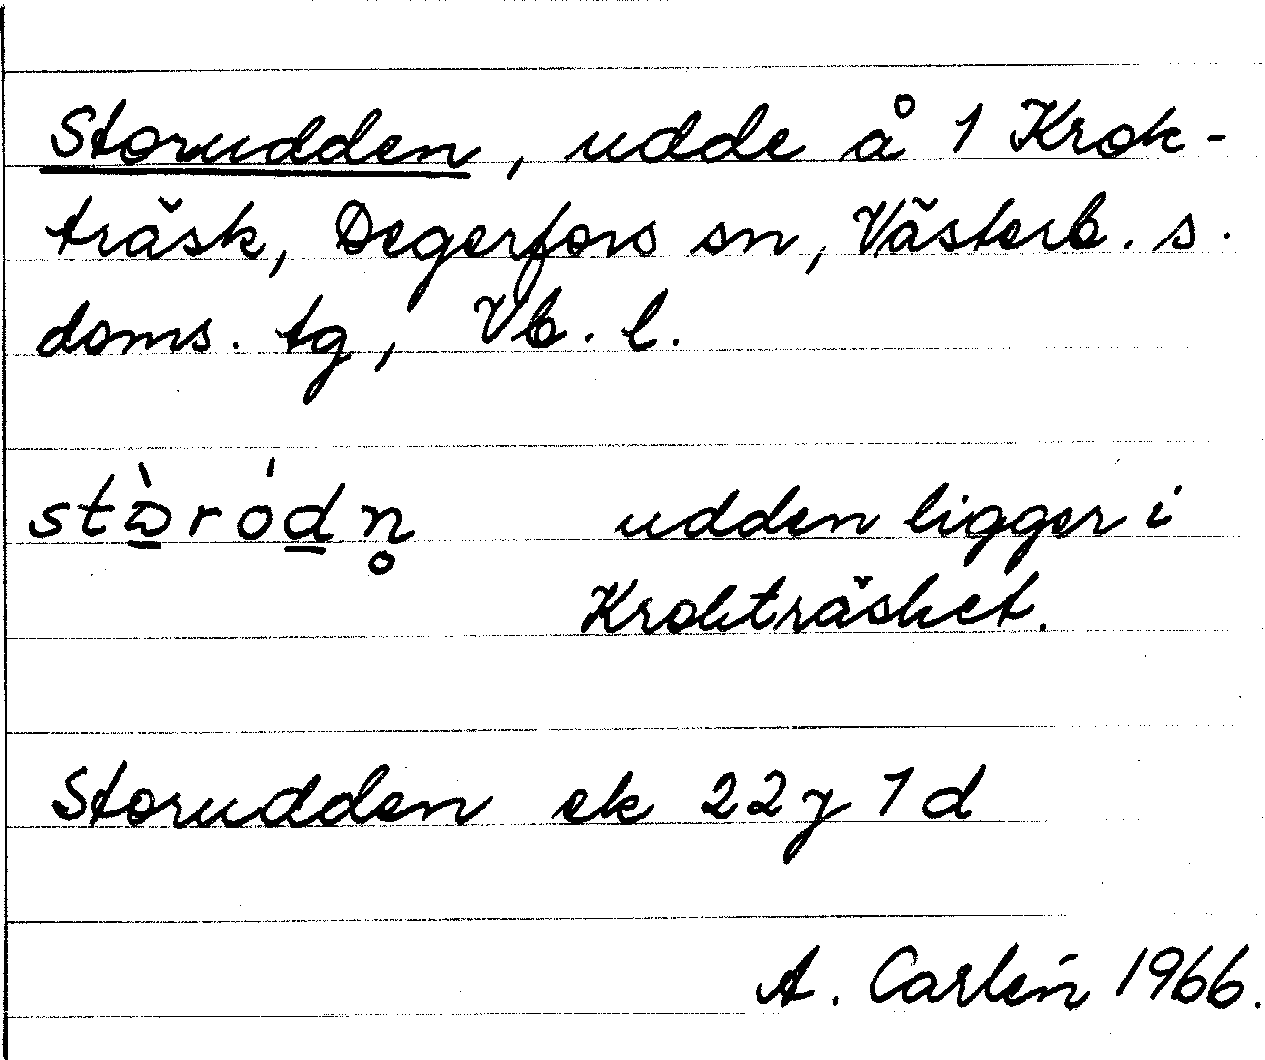 Storudden, udde å 1 Krok-
träsk, Degerfors sn, Västerb. s.
doms. tg, Vb. l.
stɷ̀ródn̥ udden ligger i
Krokträsket.
Storudden ek 22 y 1 d
A. Carlén 1966.